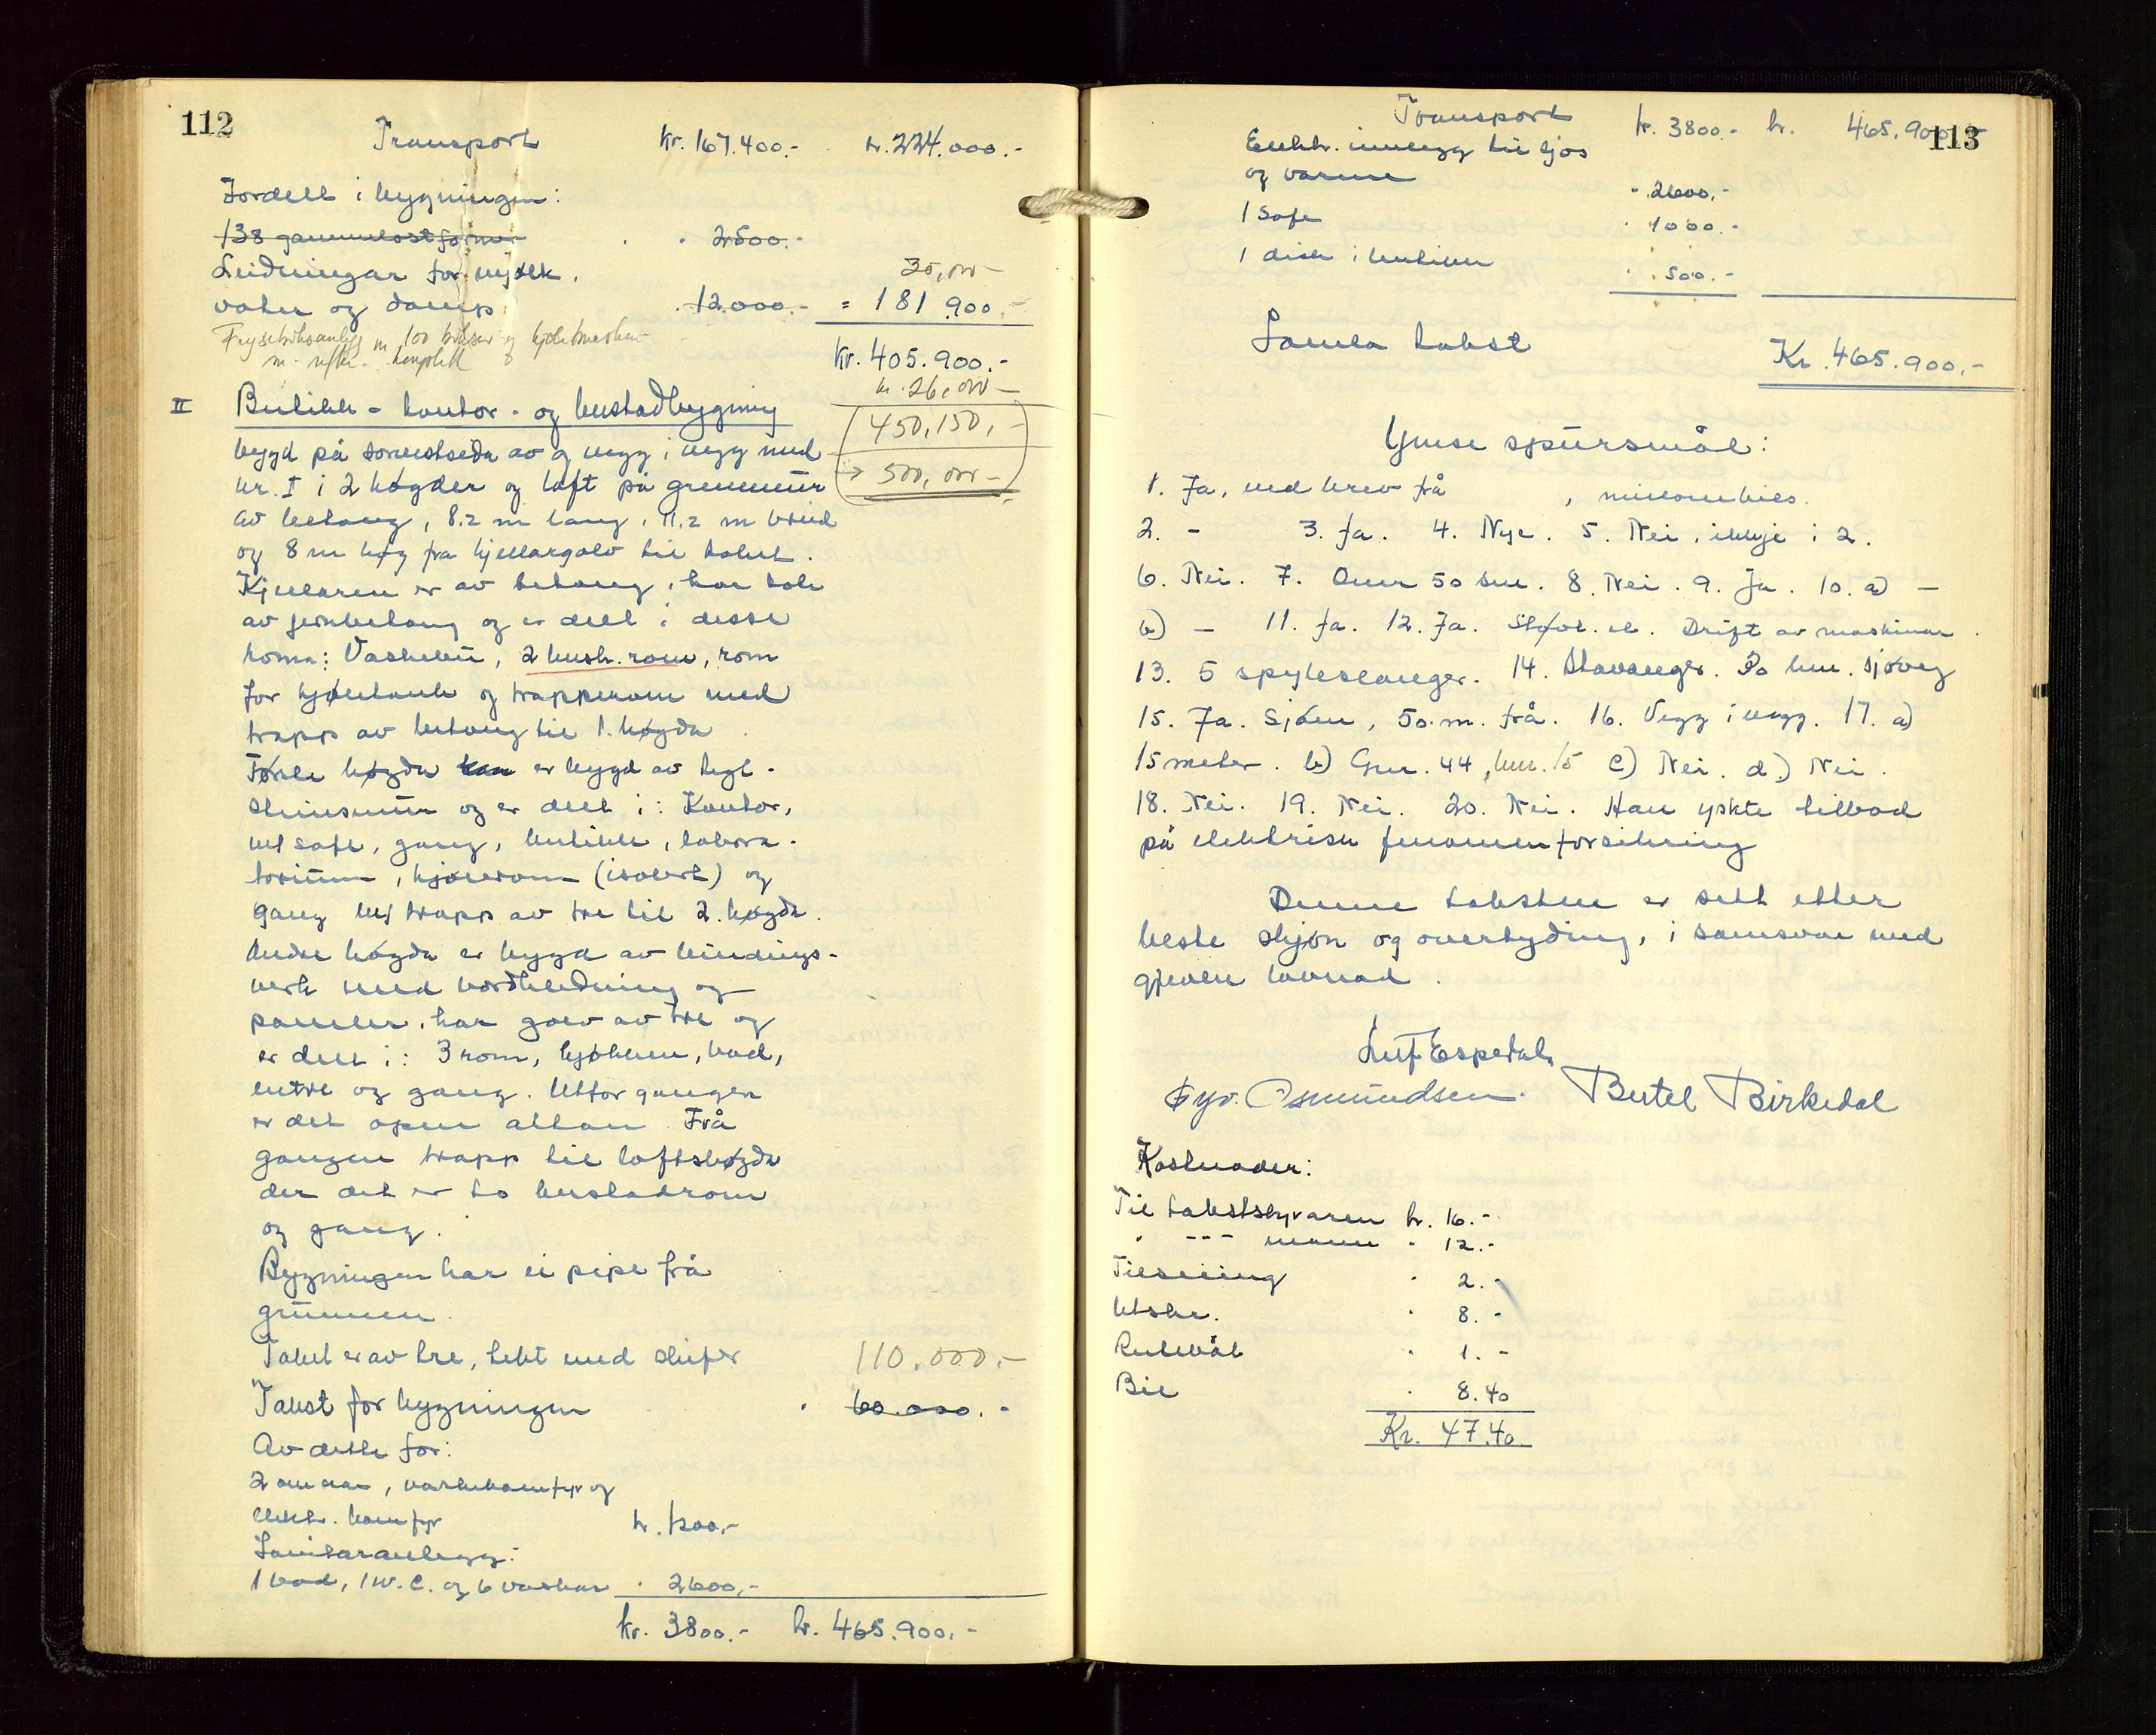 112
Transport kr. 167.400.- kr. 224.000.-
Fordelt i bygningen:
138 gammelostformer " 2500.-
Leidningar for mjølk, 30,000-
vatn og damp " 12.000.- = 181.900.-
Fryseboksanlegg m 100 bokser og kjølemaskin
m. komplett
kr. 405.900.-
kr. 26,000-
II Butikk- kontor- og bustadbygning
450,150,-
bygd på sørvestsida av og vegg i vegg med
→ 500,000-
nr. I i 2 høgder og loft på grunnmur
av betong, 8.2 m lang, 11.2 m breid
og 8 m høg fra kjellargolv til taket.
Kjellaren er av betong, har tak
av jernbetong og er delt i desse
roma: Vaskebu, 2 bush. rom, rom
for kjøletank og trapperom med
trapp av betong til 1. høgda.
Første høgda kan er bygd av tegl-
steinsmur og er delt i: Kontor,
m/ safe, gang, butikk, labora-
torium, kjølerom (isolert) og
gang m/ trapp av tre til 2. høgda.
Andre høgda er bygd av bindings-
verk med bordkledning og
paneler, har golv av tre og
er delt i: 3 rom, kjøkken, bad,
entre og gang. Utfor gangen
er det open altan. Frå
gangen trapp til loftshøgda
der det er to bustadrom
og gang.
Bygningen har ei pipe frå
grunnen.
Taket er av tre, tekt med skifer 110.000.-
Takst for bygningen " 60.000.-
Av dette for:
2 omnar, vaskekomfyr og
elektr. komfyr kr. 1200,-
Sanitæranlegg:
1 bad, 1 W.C. og 6 vaskar " 2600,-
kr. 3800.- kr. 465.900.-
113
Transport kr. 3800.- kr. 465.900.-
Elektr. innlegg til ljos
og varme " 2600.-
1 safe " 1000.-
1 disk i butikken " 500.-
Samla takst Kr. 465.900.-
Ymse spursmål:
1. Ja, ved brev frå , millombils.
2. - 3. Ja. 4. Nye. 5. Nei, ikkje i 2.
6. Nei. 7. Over 50 cm. 8. Nei. 9. Ja. 10. a) -
b) - 11. Ja. 12. Ja. Støve. el. Drift av maskinar.
13. 5 spyleslanger. 14. Stavanger. 30 km. sjøveg
15. Ja. Sjøen, 50.m. frå. 16. Vegg i vegg. 17. a)
15 meter. b) Gnr. 44, bnr. 15 c) Nei. d.) Nei.
18. Nei. 19. Nei. 20. Nei. Han yskte tilbod
på elektrisk fenomenforsikring
Denne taksten er sett etter
beste skjøn og overtyding, i samsvar med
gjeven lovnad.
Leif Espedal.
Øyv. Osmundsen. Bertel Birkedal
Kostnader:
Til takststyraren kr. 16.-
" --- mann " 12.-
Tilseiing " 2.-
Utskr. " 8.-
Rekvåt " 1.-
Bil " 8.40
Kr. 47.40